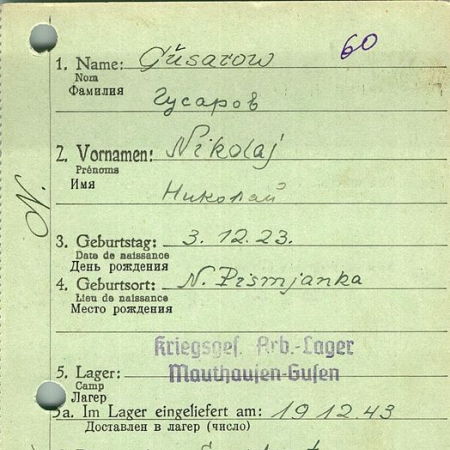 60
1. Name: Gŭsarow
Nom
Фамилия Гусаров
2. Vornamen: Nikolaj
Prénoms
Имя Николай
N.
3. Geburtstag: 3. 12. 23.
Date de naissance
День рождения
4. Geburtsort: N. Pismjanka
Lieu de naissance
Место рождения
Kriegsgef. Arb.-Lager
5. Lager: Mauthausen-Gusen
Camp
Лагерь
5a. Im Lager eingeliefert am: 19 12. 43
Доставлен в лагер (число)